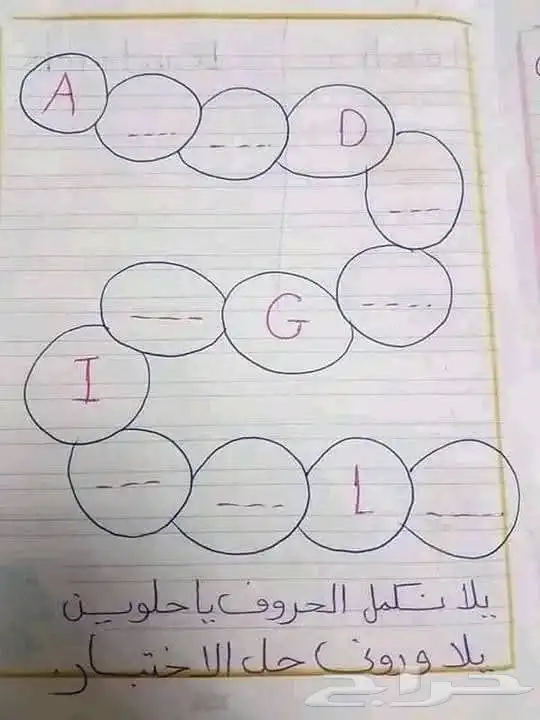 A --- --- D
---
--- G ---
I
--- --- L ---
يلا نكمل الحروف يا حلوين
يلا ورونى حل الاختبار
حراج